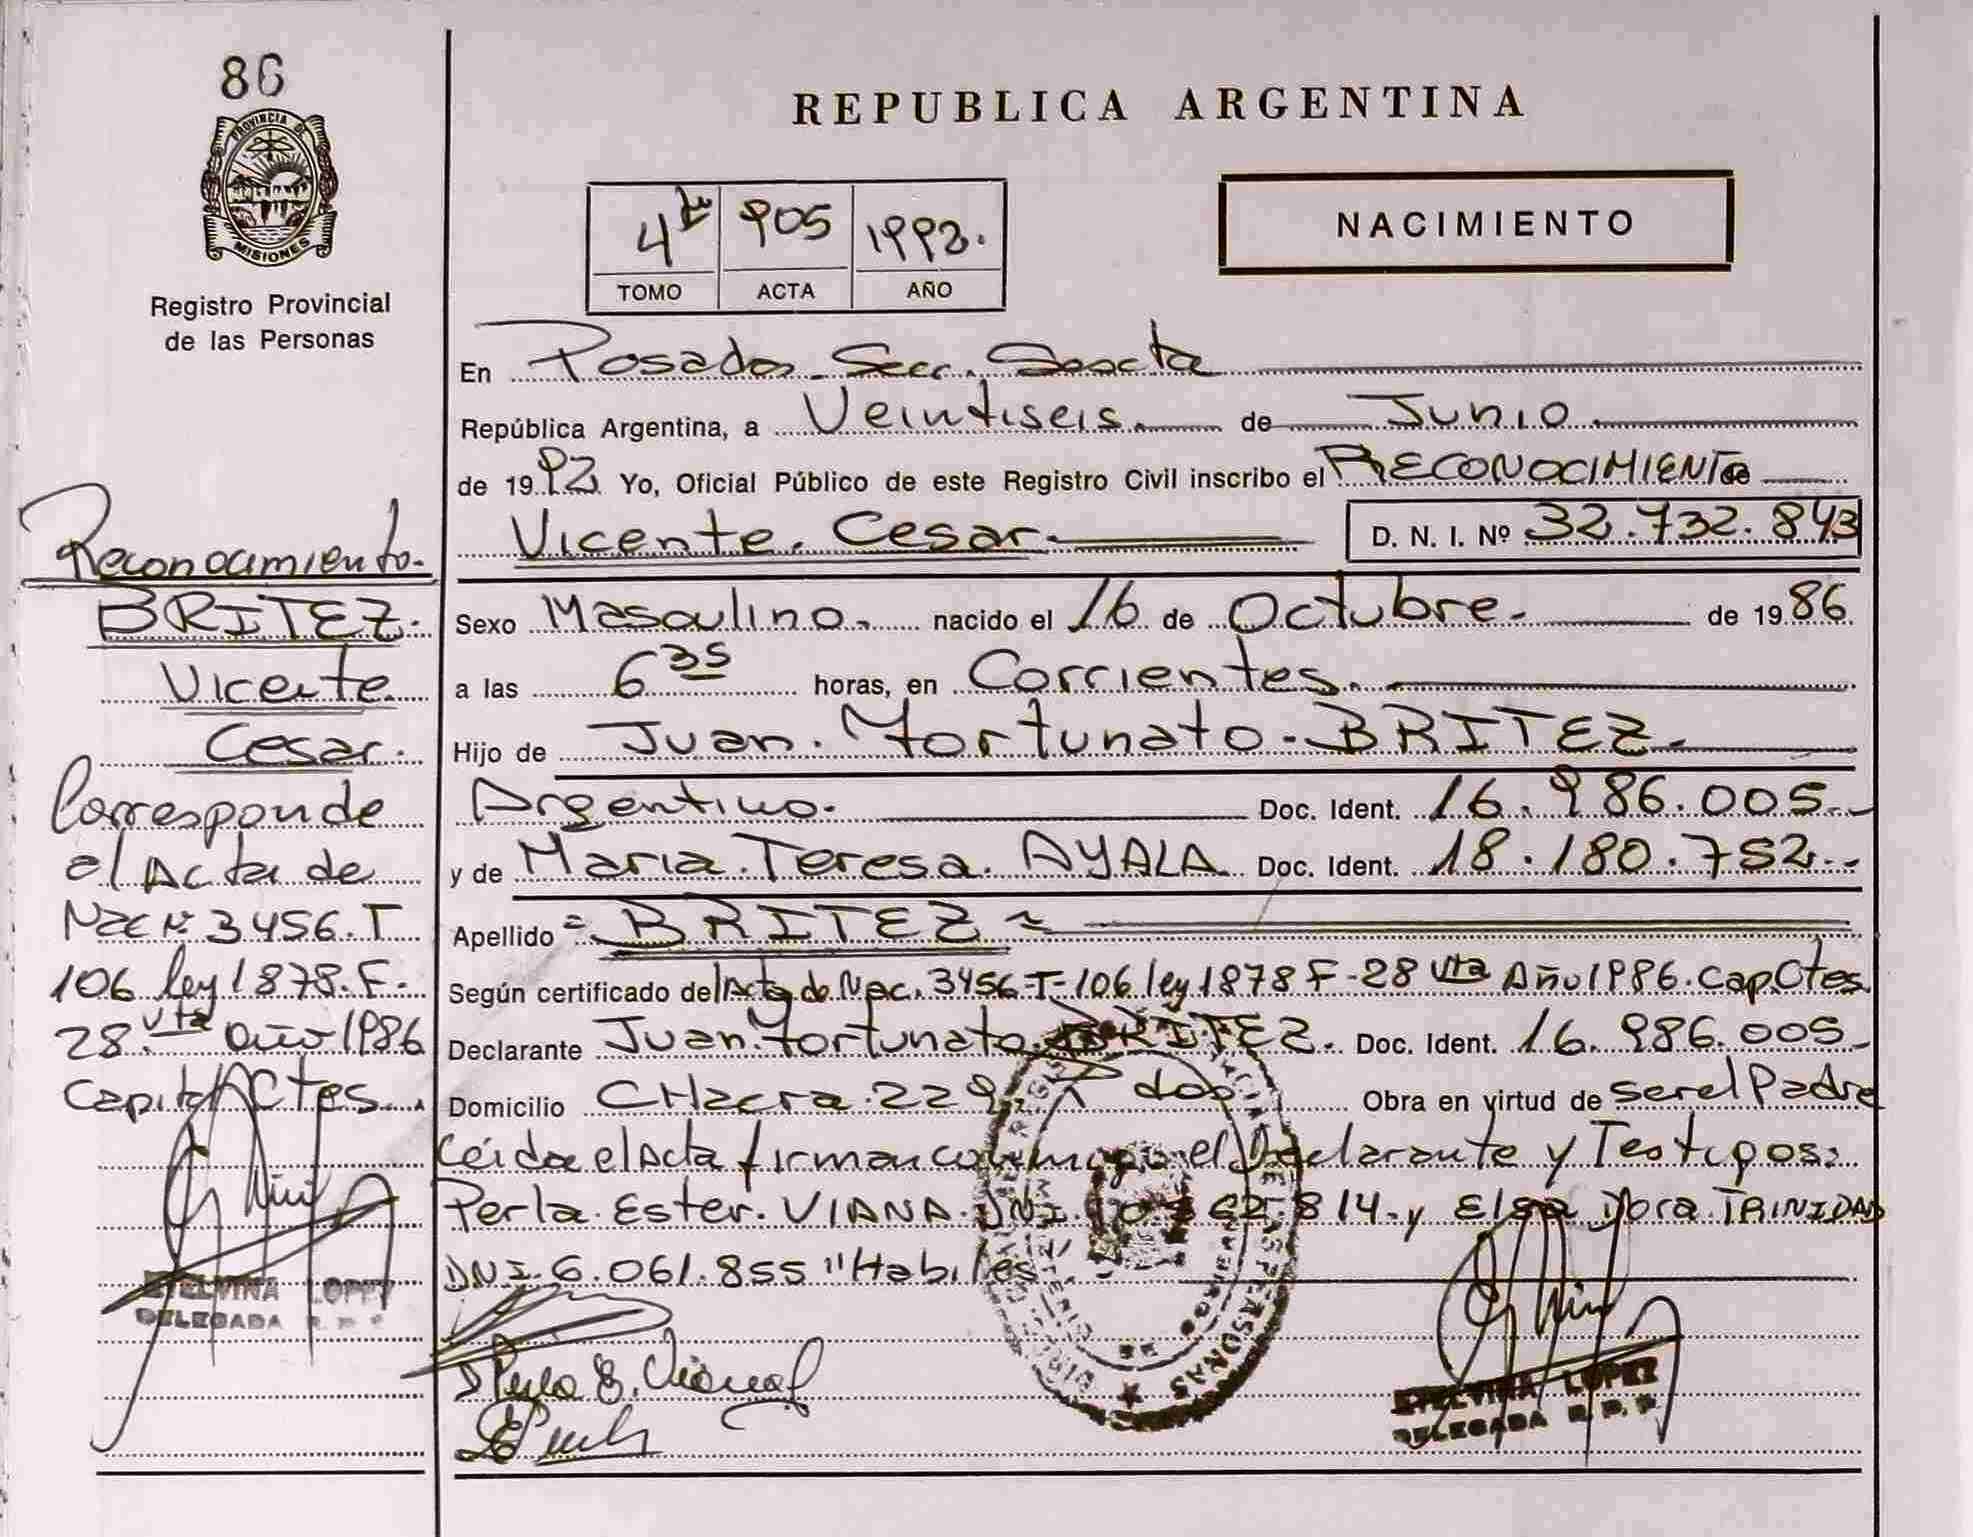 86
PROVINCIA DE
MISIONES
Registro Provincial
de las Personas
REPUBLICA ARGENTINA
4to 905 1992.
TOMO ACTA AÑO
NACIMIENTO
En Posadas Secc. Sexta
República Argentina, a Veintiseis de Junio
de 1992 Yo, Oficial Público de este Registro Civil inscribo el RECONOCIMIENTO
Vicente Cesar. D. N. I. Nº 32.732.843
Sexo Masculino. nacido el 16 de Octubre. de 1986
a las 6 35 horas, en Corrientes.
Hijo de Juan Fortunato BRITEZ.
Argentino. Doc. Ident. 16.986.005
y de Maria Teresa AYALA Doc. Ident. 18.180.752
Apellido = BRITEZ =
Según certificado del Acta de Nac. 3456-T-106 ley 1878 F-28 vta Año 1986. Cap. Ctes
Declarante Juan Fortunato BRITEZ. Doc. Ident. 16.986.005
Domicilio CHacra 229 Obra en virtud de ser el Padre
Léida el Acta firman el Declarante y Testigos:
Perla Ester VIANA DNI 814 y Elsa Dora TRINIDAD
DNI 6.061.855 "Habiles
ETELVINA LOPEZ
DELEGADA R. P. P.
Reconocimiento.
BRITEZ.
Vicente
Cesar.
Corresponde
al Acta de
Nac Nº 3456.T
106 ley 1878.F.
28 vta Año 1986
Capital Ctes.
ETELVINA LOPEZ
DELEGADA R. P. P.